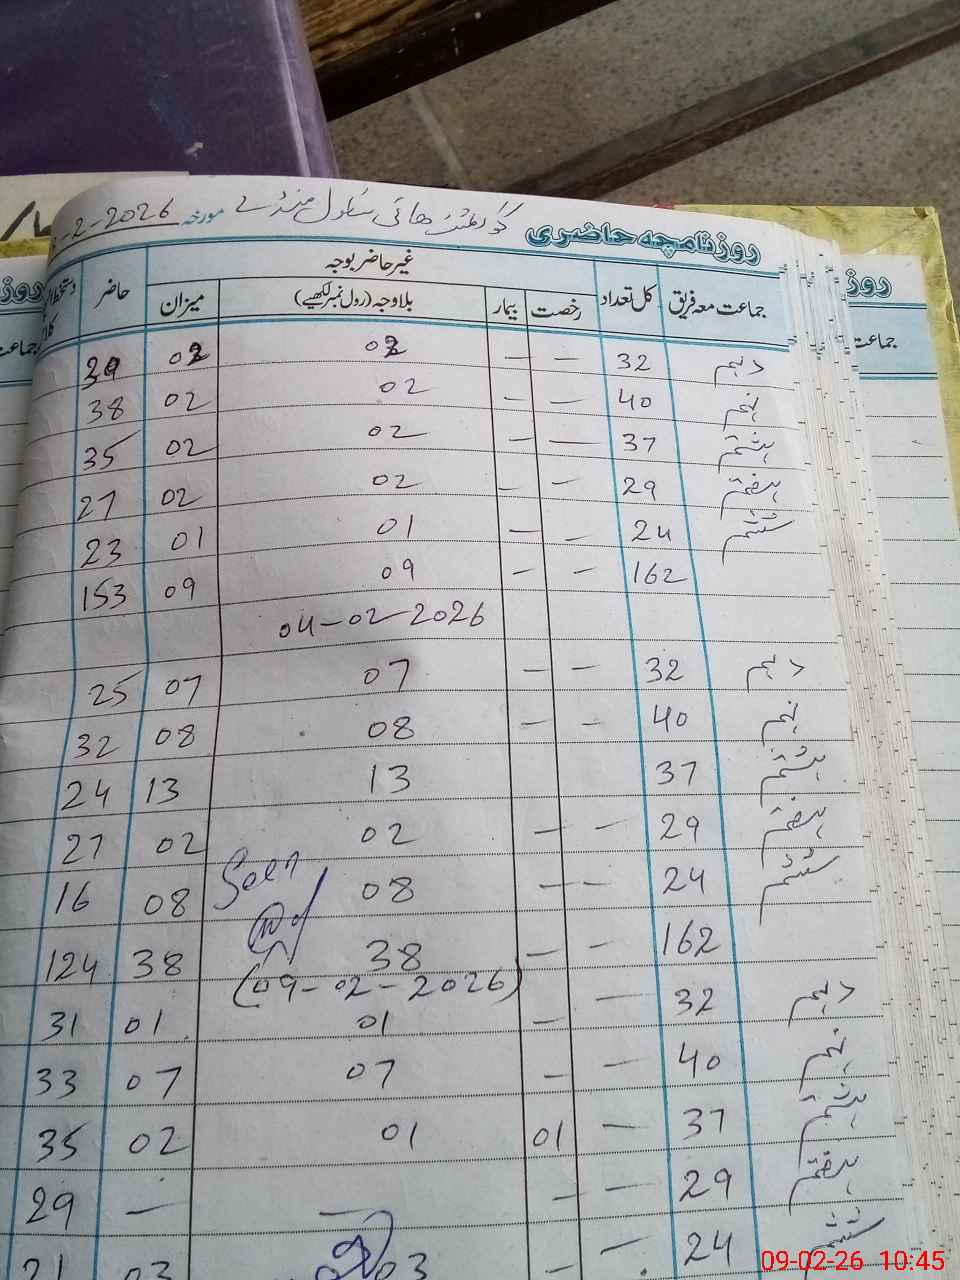 روزنامچہ حاضری گورنمنٹ ہائی سکول مورخہ -2-2026
جماعت معہ فریق کل تعداد غیر حاضر بوجہ حاضر
رخصت بیمار بلاوجہ (رول نمبر لکھیے) میزان
دہم 32 — — 02 02
نہم 40 — — 02 02 38
ہشتم 37 — — 02 02 35
ہفتم 29 — — 02 02 27
ششم 24 — — 01 01 23
162 — — 09 09 153
04-02-2026
دہم 32 — — 07 07 25
نہم 40 — — 08 08 32
ہشتم 37 13 13 24
ہفتم 29 — — 02 02 27
ششم 24 — — 08 08 16
Seen
162 — — 38 38 124
(09-02-2026)
دہم 32 — — 01 01 31
نہم 40 — — 07 07 33
ہشتم 37 — 01 01 02 35
ہفتم 29 — — — — 29
ششم 24 — — 03 03 21
روز
جماعت
09-02-26 10:45